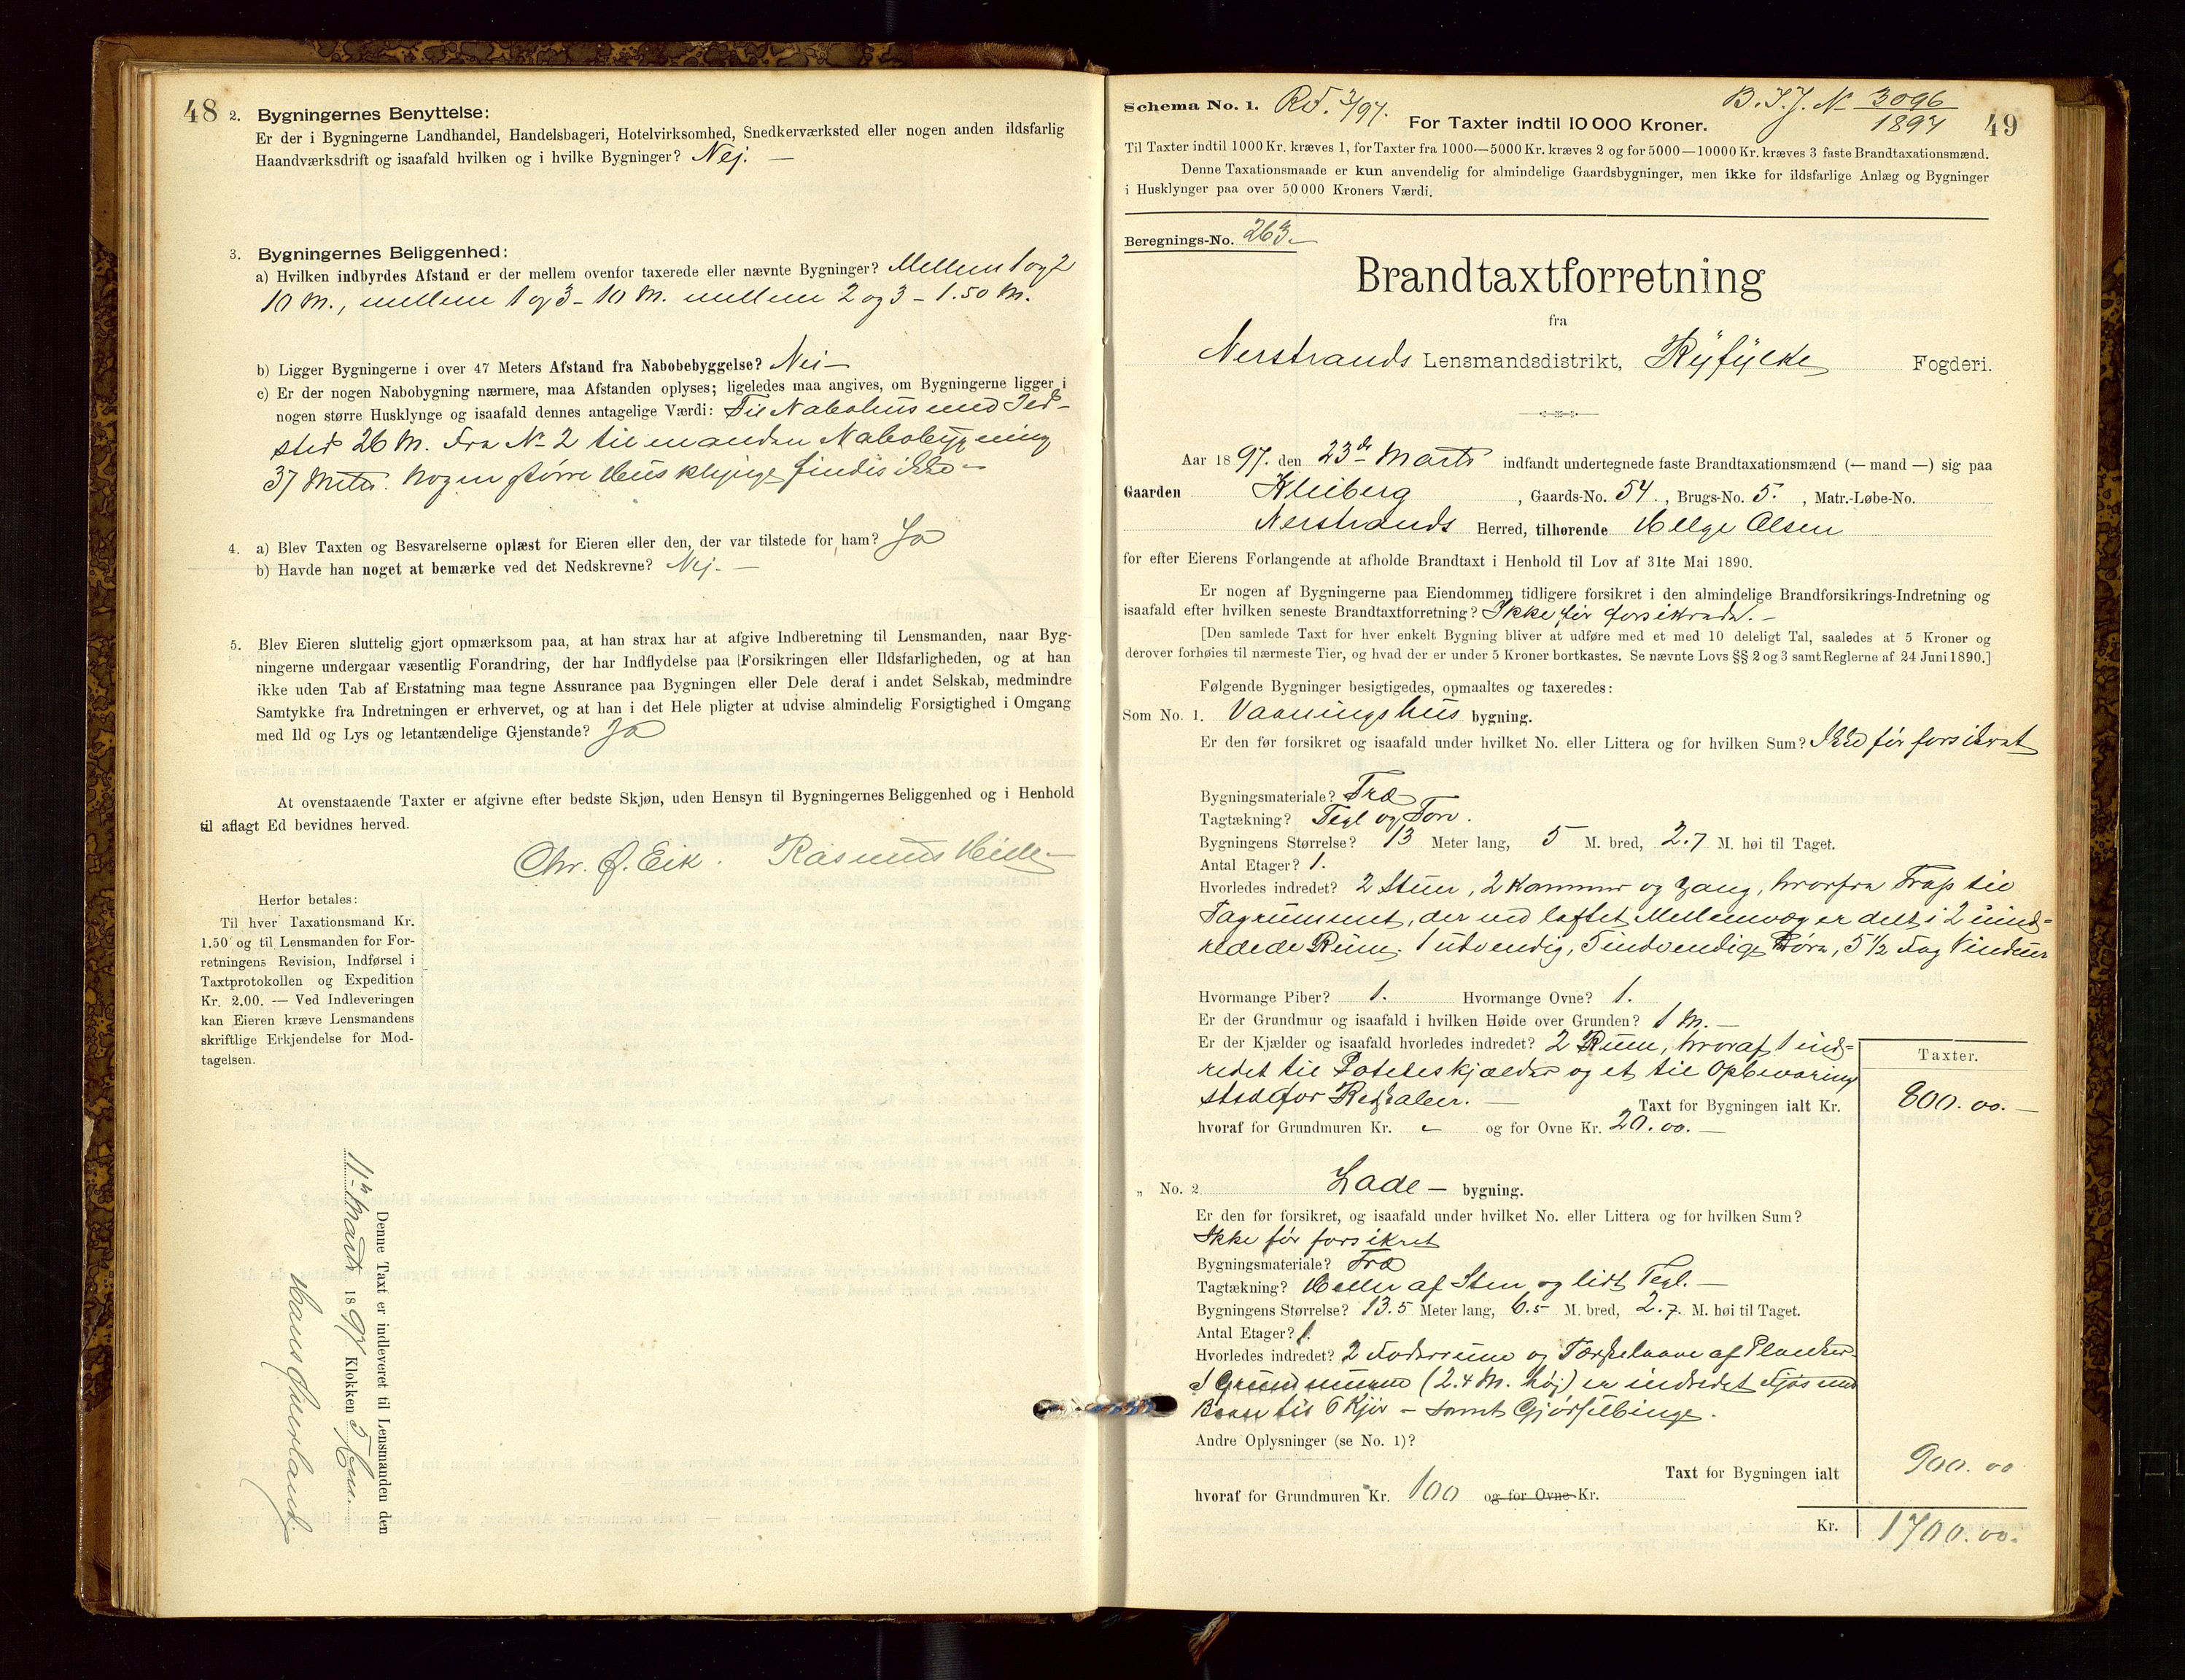 48
2. Bygningernes Benyttelse:
Er der i Bygningerne Landhandel, Handelsbageri, Hotelvirksomhed, Snedkerværksted eller nogen anden ildsfarlig
Haandværksdrift og isaafald hvilken og i hvilke Bygninger? Nej. —
3. Bygningernes Beliggenhed:
a) Hvilken indbyrdes Afstand er der mellem ovenfor taxerede eller nævnte Bygninger? Mellem 1 og 2
10 M., mellem 1 og 3 - 10 M. mellem 2 og 3 - 1.50 M.
b) Ligger Bygningerne i over 47 Meters Afstand fra Nabobebyggelse? Nei —
c) Er der nogen Nabobygning nærmere, maa Afstanden oplyses; ligeledes maa angives, om Bygningerne ligger i
nogen større Husklynge og isaafald dennes antagelige Værdi: Til Nabohus med Ild-
sted 26 M. Fra No 2 til manden Nabobygning
37 Meter. Nogen større Husklynge findes ikke —
4. a) Blev Taxten og Besvarelserne oplæst for Eieren eller den, der var tilstede for ham? Ja
b) Havde han noget at bemærke ved det Nedskrevne? Nej. —
5. Blev Eieren sluttelig gjort opmærksom paa, at han strax har at afgive Indberetning til Lensmanden, naar Byg-
ningerne undergaar væsentlig Forandring, der har Indflydelse paa Forsikringen eller Ildsfarligheden, og at han
ikke uden Tab af Erstatning maa tegne Assurance paa Bygningen eller Dele deraf i andet Selskab, medmindre
Samtykke fra Indretningen er erhvervet, og at han i det Hele pligter at udvise almindelig Forsigtighed i Omgang
med Ild og Lys og letantændelige Gjenstande? Ja
At ovenstaaende Taxter er afgivne efter bedste Skjøn, uden Hensyn til Bygningernes Beliggenhed og i Henhold
til aflagt Ed bevidnes herved.
Chr. Ø. Eik. Rasmus Hille
Herfor betales:
Til hver Taxationsmand Kr.
1.50 og til Lensmanden for For-
retningens Revision, Indførsel i
Taxtprotokollen og Expedition
Kr. 2.00. — Ved Indleveringen
kan Eieren kræve Lensmandens
skriftlige Erkjendelse for Mod-
tagelsen.
Denne Taxt er indleveret til Lensmanden den
11te Marts 1897 Klokken 5 Em.
Schema No. 1. Rd. 3/97. B. I. J. No 3096/1897
49
For Taxter indtil 10 000 Kroner.
Til Taxter indtil 1000 Kr. kræves 1, for Taxter fra 1000—5000 Kr. kræves 2 og for 5000—10000 Kr. kræves 3 faste Brandtaxationsmænd.
Denne Taxationsmaade er kun anvendelig for almindelige Gaardsbygninger, men ikke for ildsfarlige Anlæg og Bygninger
i Husklynger paa over 50 000 Kroners Værdi.
Beregnings-No. 263 —
Brandtaxtforretning
fra
Nerstrands Lensmandsdistrikt, Ryfylke Fogderi.
Aar 1897. den 23de Marts indfandt undertegnede faste Brandtaxationsmænd (— mand —) sig paa
Gaarden Kleiberg, Gaards-No. 54., Brugs-No. 5., Matr.-Løbe-No.
Nerstrands Herred, tilhørende Helge Olsen
for efter Eierens Forlangende at afholde Brandtaxt i Henhold til Lov af 31te Mai 1890.
Er nogen af Bygningerne paa Eiendommen tidligere forsikret i den almindelige Brandforsikrings-Indretning og
isaafald efter hvilken seneste Brandtaxtforretning? Ikke før forsikrede. —
[Den samlede Taxt for hver enkelt Bygning bliver at udføre med et med 10 deleligt Tal, saaledes at 5 Kroner og
derover forhøies til nærmeste Tier, og hvad der er under 5 Kroner bortkastes. Se nævnte Lovs §§ 2 og 3 samt Reglerne af 24 Juni 1890.]
Følgende Bygninger besigtigedes, opmaaltes og taxeredes:
Som No. 1. Vaaningshus bygning.
Er den før forsikret og isaafald under hvilket No. eller Littera og for hvilken Sum? Ikke før forsikret
Bygningsmateriale? Træ
Tagtækning? Tegl og Torv.
Bygningens Størrelse? 13 Meter lang, 5 M. bred, 2.7 M. høi til Taget.
Antal Etager? 1.
Hvorledes indredet? 2 Stuer, 2 Kammer og Gang, hvorfra Trap til
Tagrummet, der ved løftet Mellemvæg er delt i 2 uind-
redede Rum. 1 udvendig, 5 indvendige Døre, 5 1/2 Fag Vinduer
Hvormange Piber? 1. Hvormange Ovne? 1.
Er der Grundmur og isaafald i hvilken Høide over Grunden? 1 M. —
Er der Kjælder og isaafald hvorledes indredet? 2 Rum, hvoraf 1 ind-
redet til Poteteskjælder og et til Opbevaring
sted for Redskaber. — Taxt for Bygningen ialt Kr.
Taxter.
800.00. —
hvoraf for Grundmuren Kr. - og for Ovne Kr. 20.00. —
„ No. 2 Lade — bygning.
Er den før forsikret, og isaafald under hvilket No. eller Littera og for hvilken Sum?
Ikke før forsikret
Bygningsmateriale? Træ
Tagtækning? Heller af Sten og lidt Tegl. —
Bygningens Størrelse? 13.5 Meter lang, 6.5 M. bred, 2.7 M. høi til Taget.
Antal Etager? 1.
Hvorledes indredet? 2 Foderrum og Tærskelaave af Planker.
I Grundmuren (2.4 M. høj) er indredet Fjøs med
Baase til 6 Kjør — samt Gjødselbinge.
Andre Oplysninger (se No. 1)?
Taxt for Bygningen ialt 900.00
hvoraf for Grundmuren Kr. 100 og for Ovne Kr.
Kr. 1700.00.